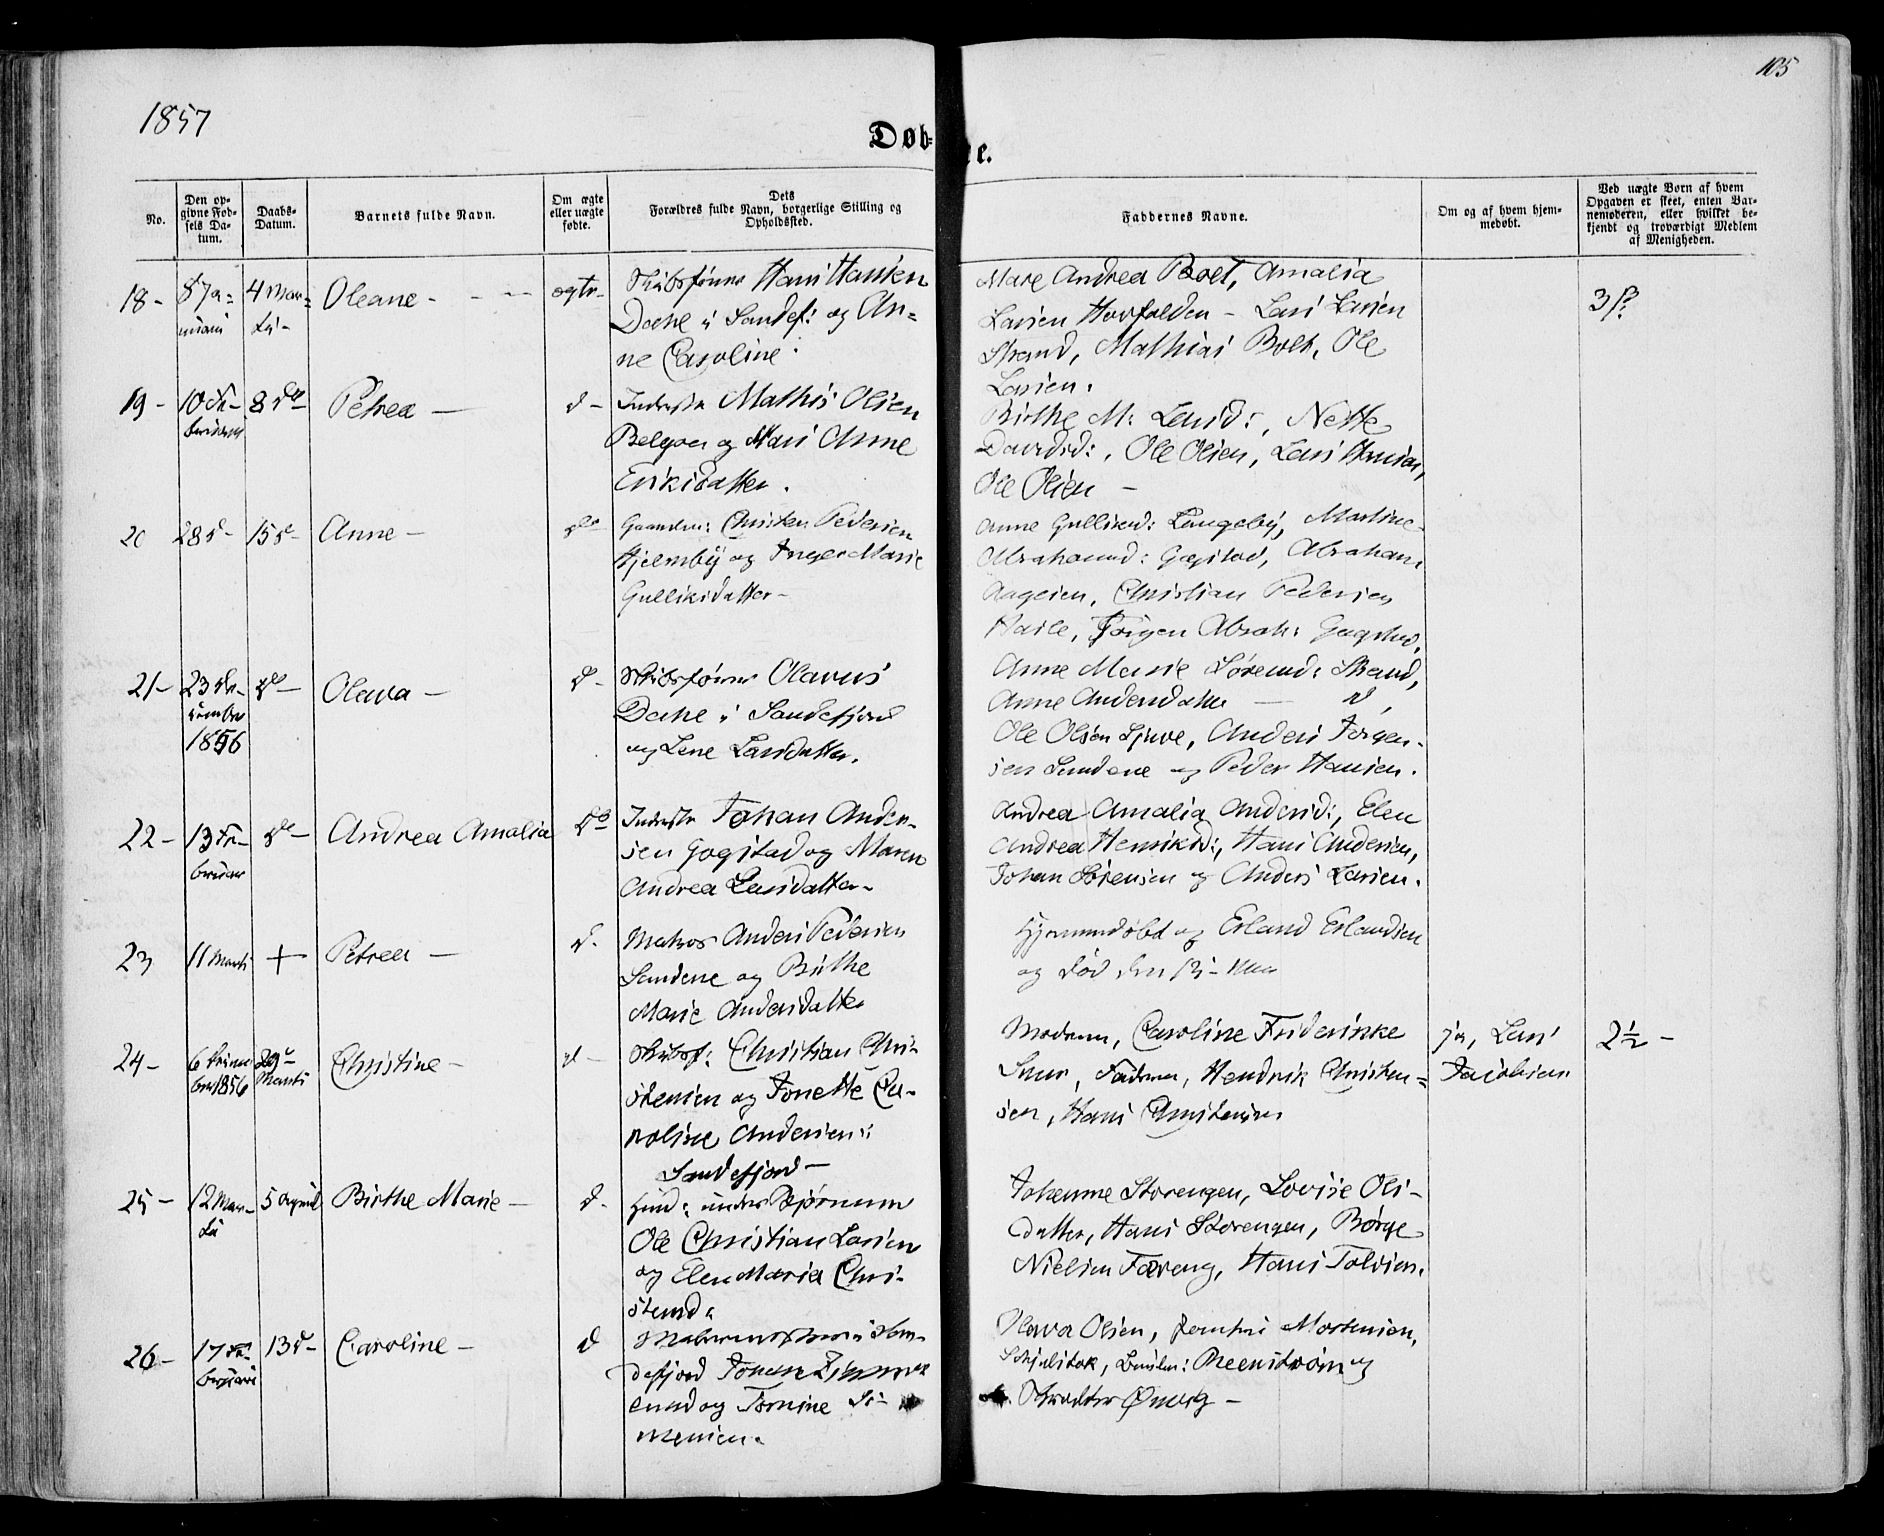 1857
105
Døb-
e.
No.
Den op-
givne Fød-
sels Da-
tum.
Daabs-
Datum.
Barnets fulde Navn.
Om ægte
eller uægte
fødte.
Dets
Forældres fulde Navn, borgerlige Stilling og
Opholdssted.
Faddernes Navne.
Om og af hvem hjem-
medøbt.
Ved uægte Børn af hvem
Opgaven er skeet, enten Bar-
nemoderen, eller hvilket be-
kjendt og troværdigt Medlem
af Menigheden.
18 - 8 Ja-
nuari
4 Mar-
ti -
Oleane -
ægte-
Skibsfører Hans Hansen
Dahl i Sandef: og An-
ne Caroline
Andrea Boet, Amalia
Larsen - Lars Larsen
Strand, Mathias Bolt, Ole
Larsen.
19 - 10 Fe-
bruar
8 d
Petrea -
d -
Inderste Mathis Olsen
og Mari Anne
Eriksdatter.
Birthe M: Larsd:, Nette
Davidsd:, Ole Olsen, Lars Hansen,
Ole Olsen -
20 28 d - 15 d - Anne -
Christen Pedersen
Hjelmby og Inger Marie
Gulliksdatter -
Anne Langeby, Martine
Abrahamsd: Gogstad, Abraham
Aagesen, Christian Pedersen
Jørgen Abrah: Gogstad,
21 - 23 De-
cember
1856
Olava -
d -
Skibsfører Olavus
Dahl i Sandefjord
og Lene Larsdatter.
Anne Marie Sørensd: Strand,
Anne Andersdatter - d,
Ole Olsen Anders Jørgen-
sen Sandene og Peder Hansen.
22 - 13 Fe-
bruar
Andrea Amalia
Inderste Johan Ander-
sen Gogstad og Maren
Andrea Larsdatter -
Andrea Amalia Andersd:, Elen
Andrea Henriksd:, Hans Andersen,
Johan Sørensen og Anders Larsen.
23 11 Marti + Petrea -
d.
Matros Anders Pedersen
Sandene og Birthe
Marie Andersdatter
Hjemmedøbt af Erland Erlandsen
og død den
24 - 6 Decem
ber 1856
29
Marti
Christine -
d -
Skibsf: Christian Chri-
stensen og Jonette Ca-
roline Andersen i
Sandefjord -
Moderen, Caroline Friderikke
Faderen, Hendrik Christen-
sen, Hans Christensen
ja, Lars
Jacobsen
2½ -
25 - 12 Mar-
ti
5 April Birthe Marie -
d.
Huusm: under Bjørnum
Ole Christian Larsen
og Elen Maria Chri-
stensd:
Johanne Storengen, Lovise Ols-
datter, Hans Storengen, Børge
Nielsen Hans Tolvsen.
26 - 17 Fe-
bruari
13 d - Caroline -
d
i San-
defjord Johan
og Jornine Si-
mensen.
Olava Olsen, Mortensen,
og